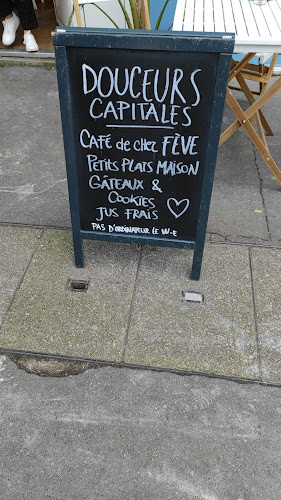 DOUCEURS
CAPITALES
CAFÉ de chez FÈVE
PETITS PLATS MAISON
GÂTEAUX &
COOKIES
JUS FRAIS
PAS D'ORDINATEUR LE W-E